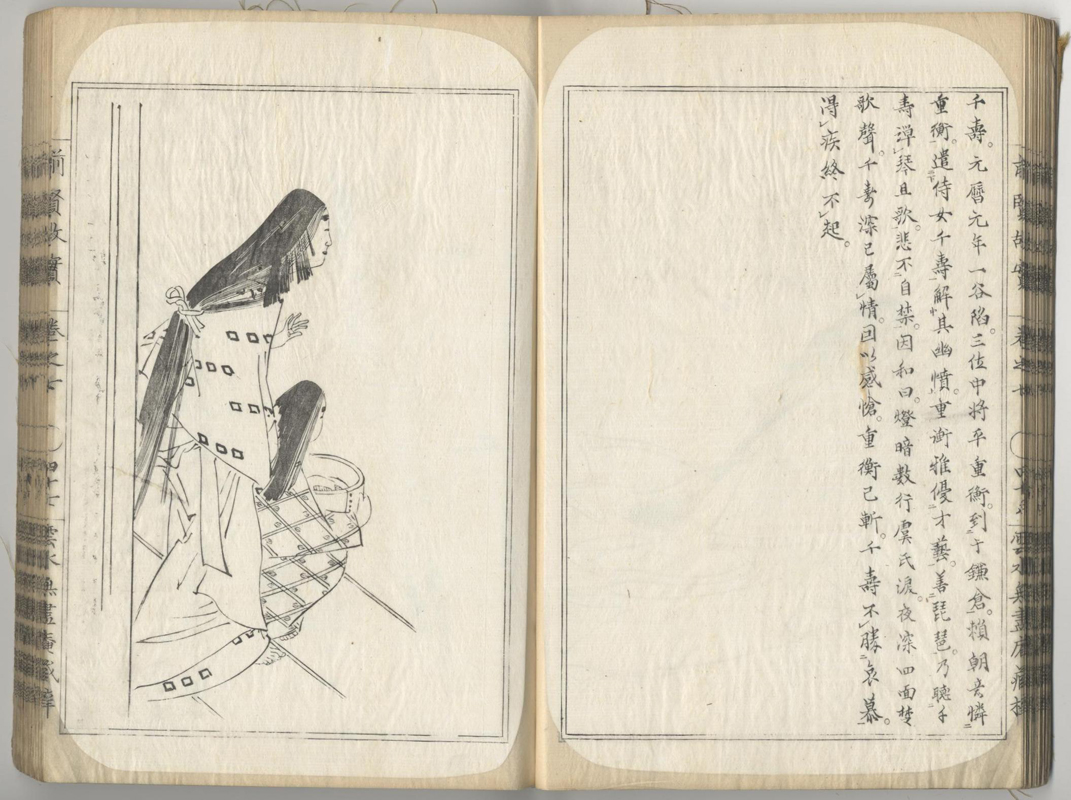 前賢故實 卷之七
雲水無盡庵藏梓
千壽。元曆元年一谷陷。三位中將平重衡到于鎌倉。賴朝憐
重衡。遣侍女千壽解其幽憤。重衡雅優才藝。善琵琶。乃聽千
壽彈琴且歌。悲不自禁。因和曰。燈暗數行虞氏淚。夜深四面楚
歌聲。千壽深已屬情。回以感愴。重衡已斬。千壽不勝哀慕。
得疾終不起。
前賢故實 卷之七 四十七 雲水無盡庵藏梓